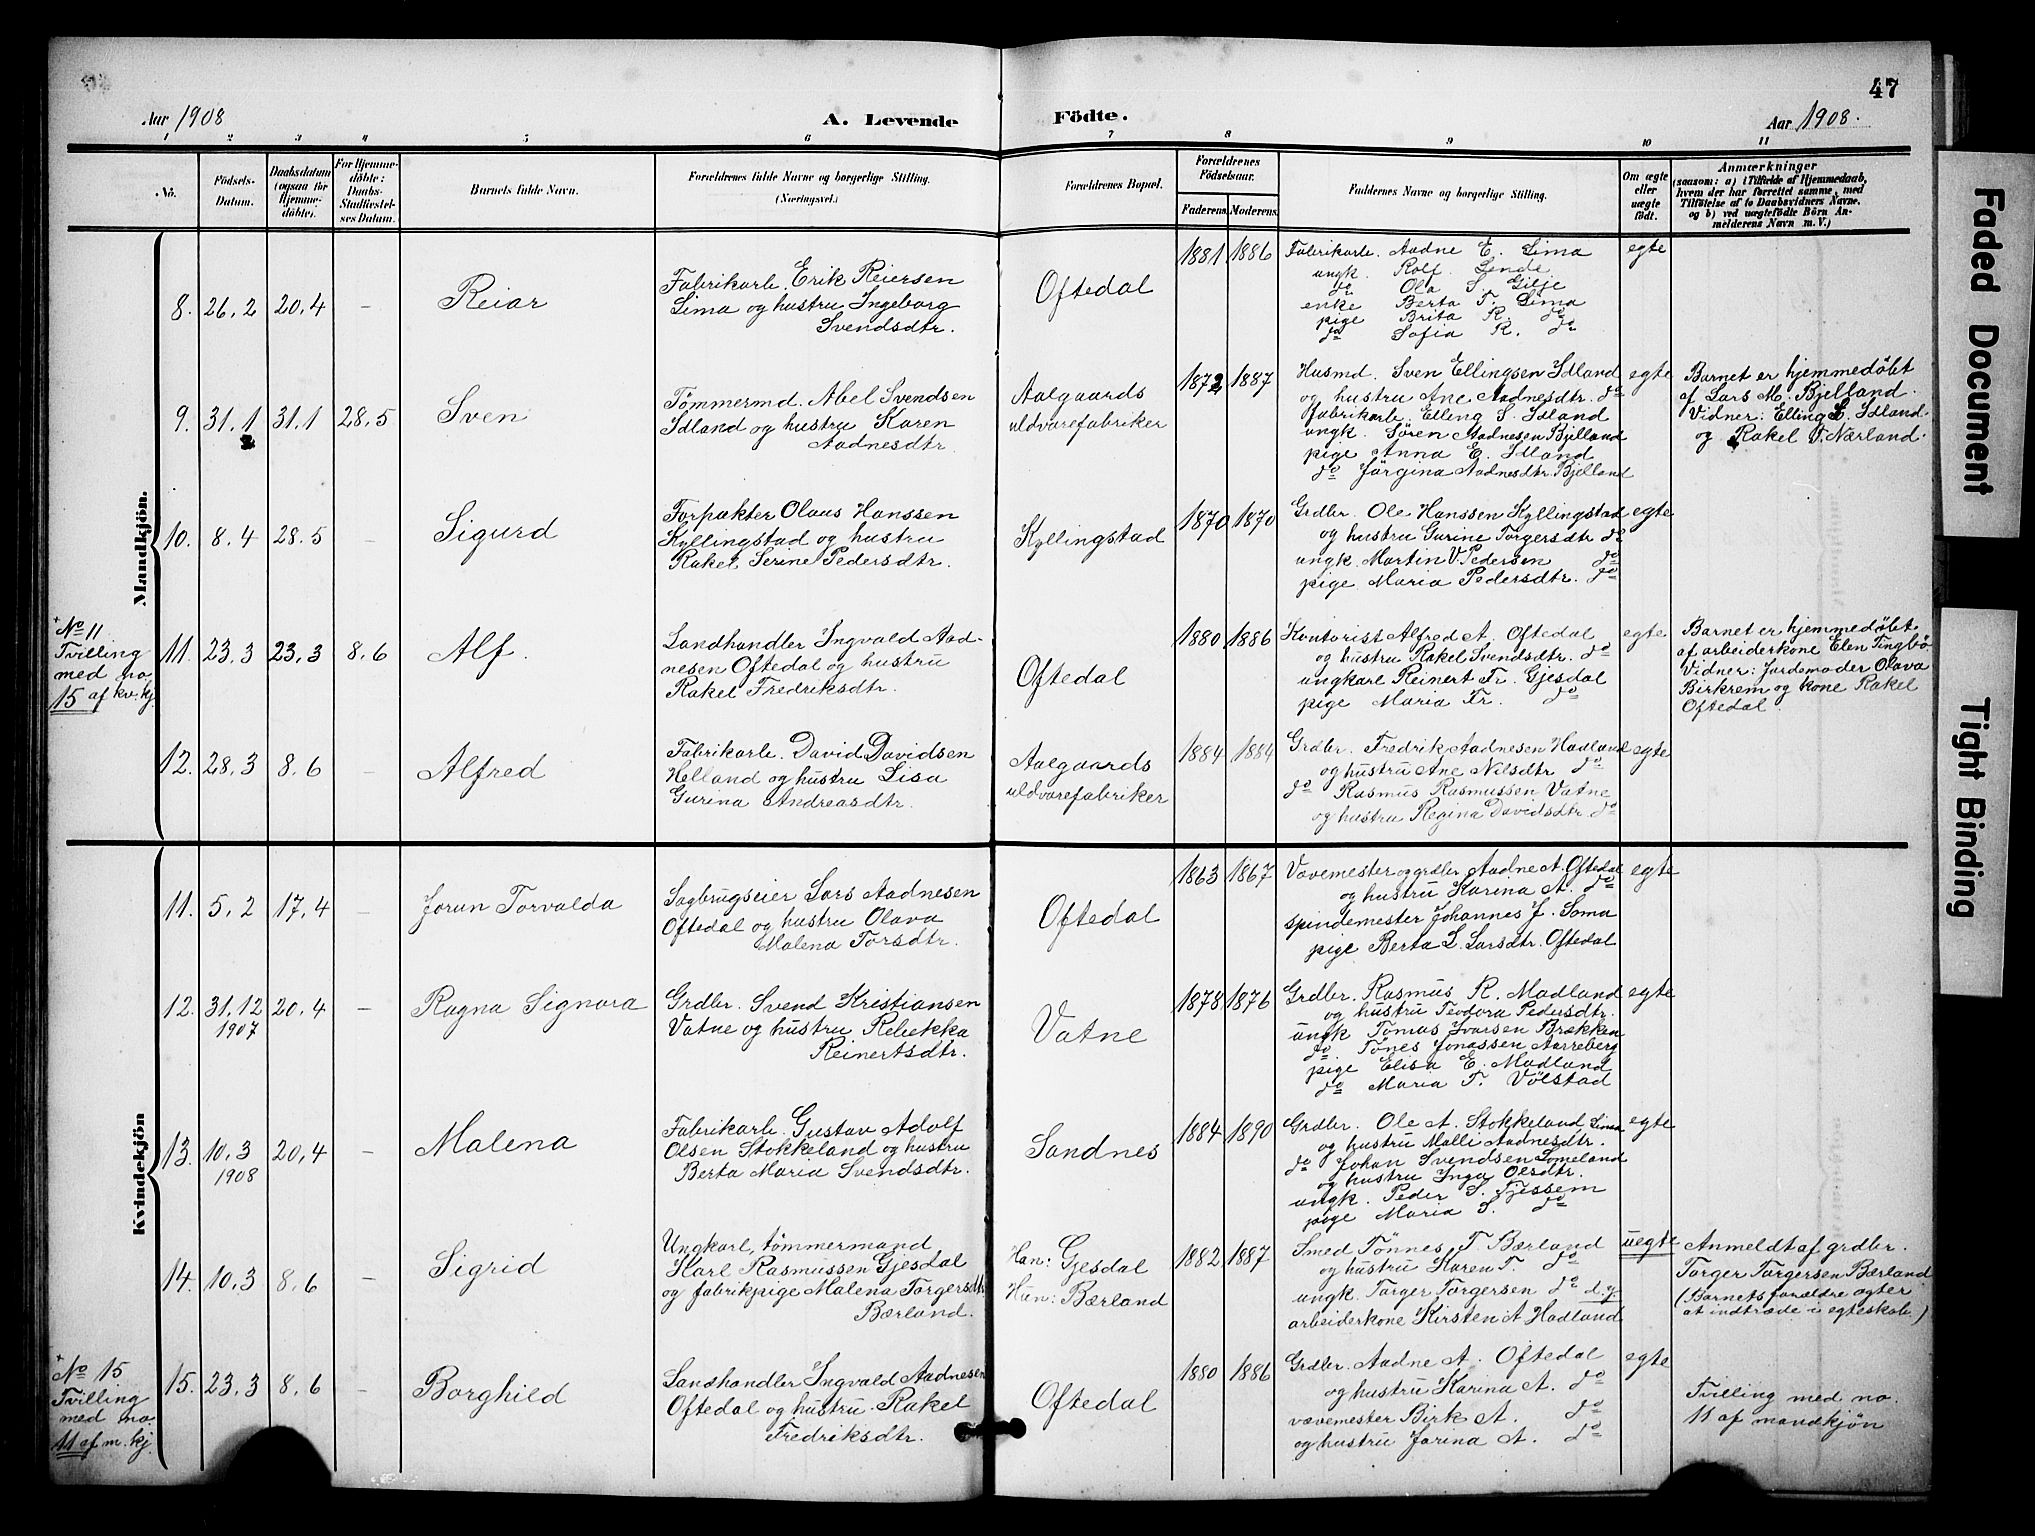 47
Aar 1908
A. Levende Födte.
Aar 1908.
1 2 3 4 5 6 7 8 9 10 11
No.
Födsels-
Datum.
Daabsdatum
(ogsaa for
Hjemme-
döbte).
For Hjemme-
döbte:
Daabs-
Stadfæstel-
ses Datum.
Barnets fulde Navn.
Forældrenes fulde Navne og borgerlige Stilling.
(Næringsvei.)
Forældrenes Bopæl.
Forældrenes
Födselsaar.
Faderens. Moderens.
Faddernes Navne og borgerlige Stilling.
Om ægte
eller
uægte
födt.
Anmærkninger
(saasom: a) i Tilfælde af Hjemmedaab,
hvem der har forrettet samme, med
Tilföielse af to Daabsvidners Navne.
og b) ved uægtefödte Börn An-
melderens Navn m. V.)
Mandkjön.
8. 26.2 20.4 –
Reiar
Fabrikarb. Erik Reiersen
Lima og hustru Ingeborg
Svendsdtr.
Oftedal
1881 1886
Fabrikarb. Aadne E. Lima
ungk. Rolf Lende
do Ola S. Gilje
enke Berta T. Lima
pige Brita R. do
do Sofia R. do
egte
9. 31.1 31.1 28.5
Sven
Tömmermd. Abel Svendsen
Idland og hustru Karen
Aadnesdtr.
Aalgaards
uldvarefabriker
1872 1887
Husmd. Sven Ellingsen Idland
og hustru Ane Aadnesdtr. do
fabrikarb. Elling S. Idland
ungk. Sören Aadnesen Bjelland
pige Anna E. Idland
do Jörgina Aadnesdtr. Bjelland
egte
Barnet er hjemmedöbt
af Lars M. Bjelland.
Vidner: Elling S. Idland.
og Rakel T. Nærland.
10. 8.4 28.5 –
Sigurd
Forpakter Olaus Hanssen
Kyllingstad og hustru
Rakel Serine Pedersdtr.
Kyllingstad
1870 1870
Grdbr. Ole Hanssen Kyllingstad
og hustru Gurine Torgersdtr do
ungk. Martin V. Pedersen do
pige Maria Pedersdtr. do
egte
+ No 11
Tvilling
med no
15 af kv. kj.
11. 23.3 23.3 8.6
Alf.
Landhandler Ingvald Aad-
nesen Oftedal og hustru
Rakel Fredriksdtr.
Oftedal
1880 1886
Kontorist Alfred A. Oftedal
og hustru Rakel Svendsdtr. do
ungkarl Reinert Fr. Gjesdal
pige Maria Fr. do
egte
Barnet er hjemmedöbt.
af arbeiderkone Elen Tingbö
Vidner: Jordemoder Olava
Birkrem og kone Rakel
Oftedal.
12. 28.3 8.6 –
Alfred
Fabrikarb. David Davidsen
Helland og hustru Lisa
Gurina Andreasdtr.
Aalgaards
uldvarefabriker
1884 1884
Grdbr. Fredrik Aadnesen Hadland
og hustru Ane Nilsdtr do
do Rasmus Rasmussen Vatne
og hustru Regina Davidsdtr. do
egte
Kvindekjön
11. 5.2 17.4 –
Jorun Torvalda
Sagbrugseier Lars Aadnesen
Oftedal og hustru Olava
Malena Torsdtr.
Oftedal
1863 1867
Vævemester og grdbr Aadne A. Oftedal
og hustru Karina A. do
spindemester Johannes J. Soma
pige Berta L. Larsdtr. Oftedal
egte
12. 31.12 20.4 –
1907
Ragna Signora
Grdbr. Svend Kristiansen
Vatne og hustru Rebekka
Reinertsdtr.
Vatne
1878 1876
Grdbr. Rasmus R. Madland
og hustru Teodora Pedersdtr.
ungk Tomas Ivarsen Brækken
do. Tönes Jonassen Aarreberg
pige Elisa E. Madland
do Maria T. Völstad
egte
13. 10.3 20.4 –
1908
Malena
Fabrikarb. Gustav Adolf
Olsen Stokkeland og hustru
Berta Maria Svendsdtr.
Sandnes
1884 1890
Grdbr. Ole A. Stokkeland, Lima
og hustru Malli Aadnesdtr.
do Johan Svendsen Lomeland
og hustru Inga Olsdtr.
ungk. Peder S. Njessem
pige Maria S. do
egte
14. 10.3 8.6 –
Sigrid
Ungkarl, tömmermand
Karl Rasmussen Gjesdal
og fabrikpige Malena Torgersdtr
Bærland.
Han: Gjesdal
Hun: Bærland
1882 1887
Smed Tönnes T. Bærland
og hustru Karen T. do
ungk. Torger Torgersen do d.y.
arbeiderkone Kirsten A Hadland
uegte
Anmeldt af grdbr.
Torger Torgersen Bærland
(Barnets forældre agter
at indtræde i egteskab.)
+ No 15
Tvilling
med no
11 af m. kj.
15. 23.3 8.6 –
Borghild
Landhandler Ingvald Aadnesen
Oftedal og hustru Rakel
Fredriksdtr.
Oftedal
1880 1886
Grdbr. Aadne A. Oftedal
og hustru Karina A. do
vævemester Birk A. do
og hustru Jorina A. do
egte
Tvilling med no.
11 af mandkjön
Faded Document
Tight Binding